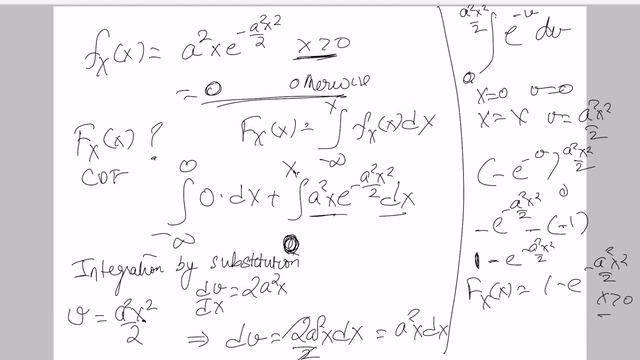 fₓ(x) = a²xe^(-a²x²/2) x≥0
= 0 otherwise
Fₓ(x) ? Fₓ(x) = ∫_{-∞}^{x} fₓ(x)dx
∫_{-∞}^{0} 0·dx + ∫_{0}^{x} a²xe^(-a²x²/2) dx
Integration by substitution
v = a²x²/2 dv/dx = 2a²x
⇒ dv = 2a²xdx/2 = a²xdx
∫_{0}^{a²x²/2} e^(-v) dv
x=0 v=0
x=x v=a²x²/2
(-e^(-v))_{0}^{a²x²/2}
-e^(-a²x²/2) - (-1)
1-e^(-a²x²/2)
Fₓ(x) = 1-e^(-a²x²/2)
x≥0